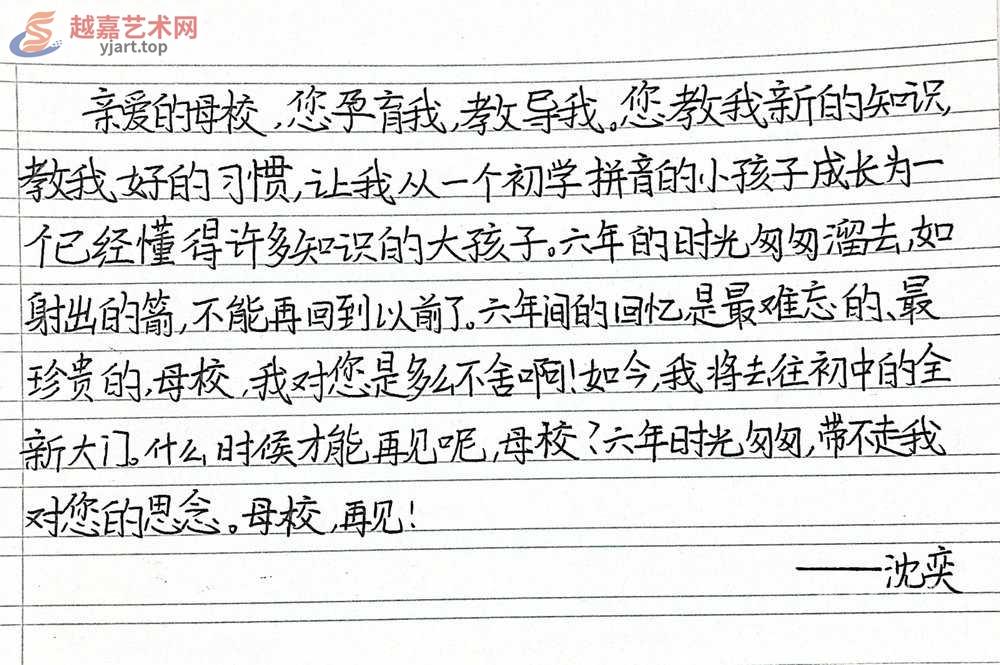 越嘉艺术网
yjart.top
亲爱的母校,您孕育我,教导我。您教我新的知识,
教我好的习惯,让我从一个初学拼音的小孩子成长为一
个已经懂得许多知识的大孩子。六年的时光匆匆溜去,如
射出的箭,不能再回到以前了。六年间的回忆是最难忘的、最
珍贵的,母校,我对您是多么不舍啊!如今,我将去往初中的全
新大门。什么时候才能再见呢,母校?六年时光匆匆,带不走我
对您的思念。母校,再见!
——沈奕